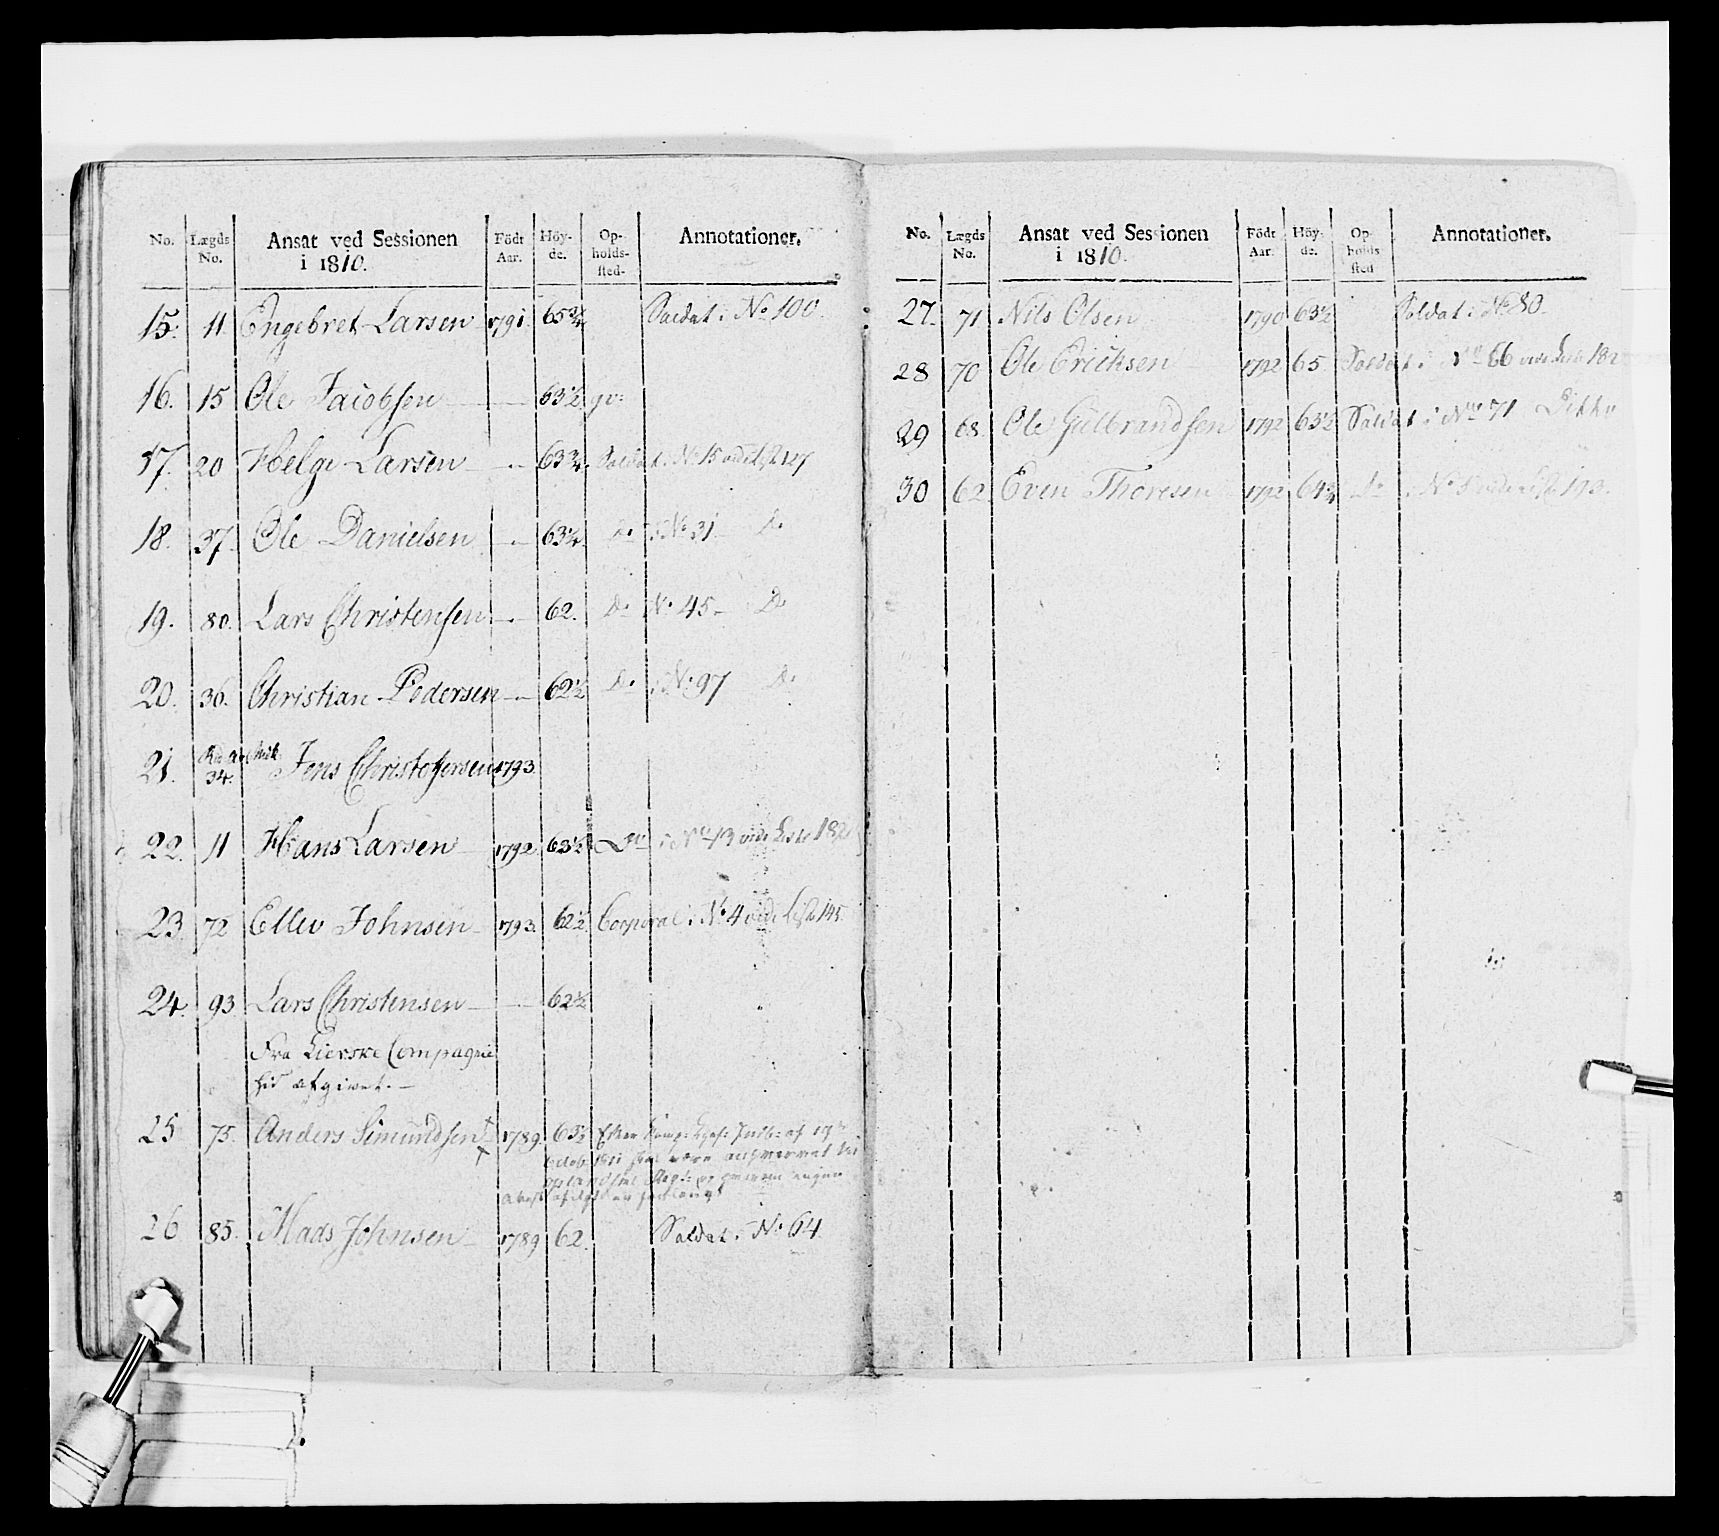 No. Lægds No. Ansat ved Sessionen i 1810. Födt Aar. Höy- de. Op- holds- sted- Annotationer.
15. 11 Engebret Larsen 1791. 65¾ Soldat i No 100.
16. 15 Ole Jacobsen — 63½
17. 20 Helge Larsen — 63¾ Soldat i No 15
18. 37. Ole Danielsen — 63¼ Do i No 31. Do
19. 80. Lars Christensen — 62. Do No 45 Do
20. 36. Christian Pedersen — 62½ Do i No 97 Do
21. 34. Jens Christophersen 1793.
22. 11 Hans Larsen 1792 63½ Do i No 13 vide Liste 182
23. 72 Ellev Johnsen 1793. 62½ Corporal i No 4 vide Liste 145.
24. 93 Lars Christensen — 62½
Fra Lierske Compagnie
hid afgivet. —
25 75. Anders Simundsen 1789. 63½
26 85. Mads Johnsen 1789 62. Soldat i No 64
No. Lægds No. Ansat ved Sessionen i 1810. Födt Aar. Höy- de. Op- holds sted Annotationer.
27. 71 Nils Olsen 1790 63½ Soldat i No 80.
28 70 Ole Ericksen 1792 65 Soldat i No 66 vide Liste 182
29 68. Ole Gulbrandsen 1792 63½ Soldat i No 71 Ditto
30 62 Even Thoresen 1792 64¾ Do i No